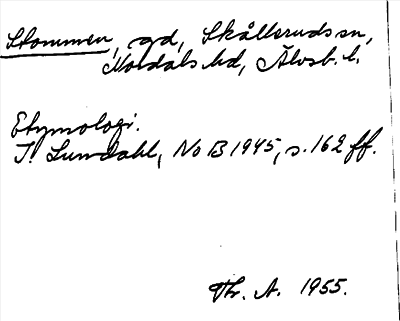 Stommen, gd, Skållerudssn,
Nordals hd, Älvsb. l.
Etymologi.
I. Lundahl, NoB 1945, s. 162 ff.
Thr. A. 1955.